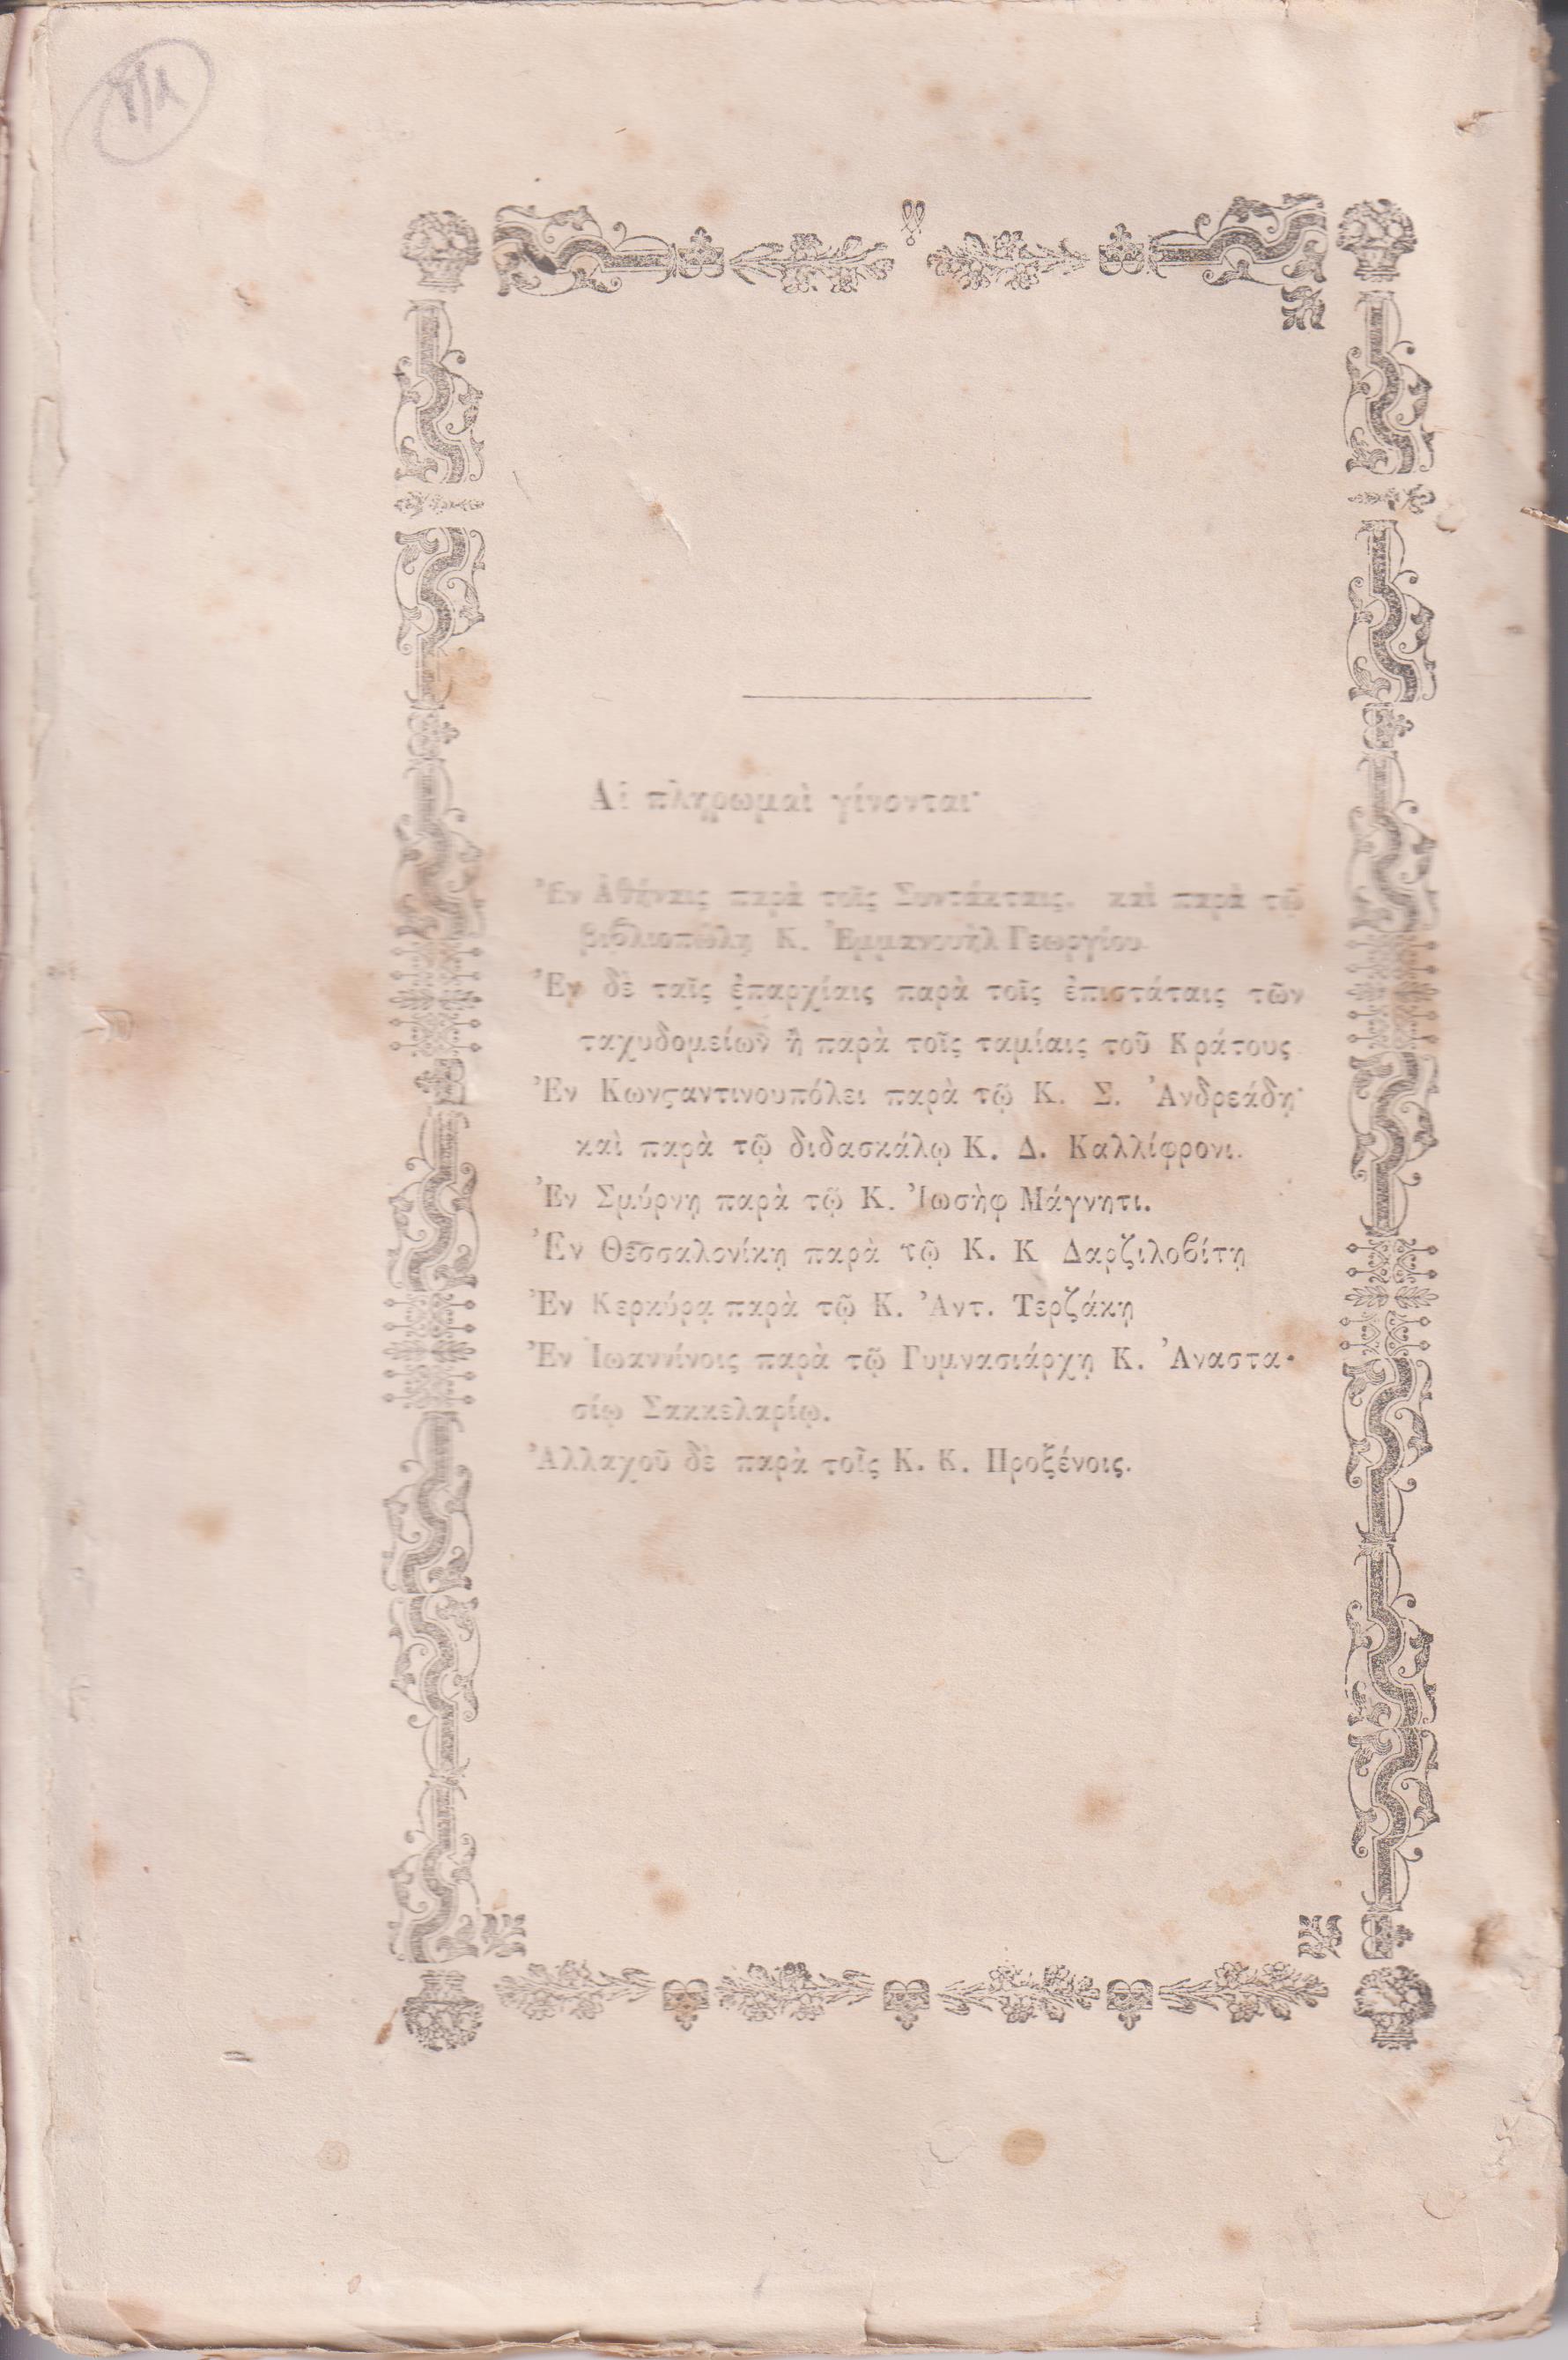 Αἱ πληρωμαὶ γίνονται·
Ἐν Ἀθήναις παρὰ τοῖς Συντάκταις, καὶ παρὰ τῷ
βιβλιοπώλῃ Κ. Ἐμμανουὴλ Γεωργίου
Ἐν δὲ ταῖς ἐπαρχίαις παρὰ τοῖς ἐπιστάταις τῶν
ταχυδομείων ἢ παρὰ τοῖς ταμίαις τοῦ Κράτους
Ἐν Κωνϛαντινουπόλει παρὰ τῷ Κ. Σ. Ἀνδρεάδῃ·
καὶ παρὰ τῷ διδασκάλῳ Κ. Δ. Καλλίφρονι.
Ἐν Σμύρνῃ παρὰ τῷ Κ. Ἰωσὴφ Μάγνητι.
Ἐν Θεσσαλονίκῃ παρὰ τῷ Κ. Κ Δαρζιλοβίτῃ
Ἐν Κερκύρᾳ παρὰ τῷ Κ. Ἀντ. Τερζάκῃ
Ἐν Ἰωαννίνοις παρὰ τῷ Γυμνασιάρχῃ Κ. Ἀναστα-
σίῳ Σακκελαρίῳ.
Ἀλλαχοῦ δὲ παρὰ τοῖς Κ. Κ. Προξένοις.